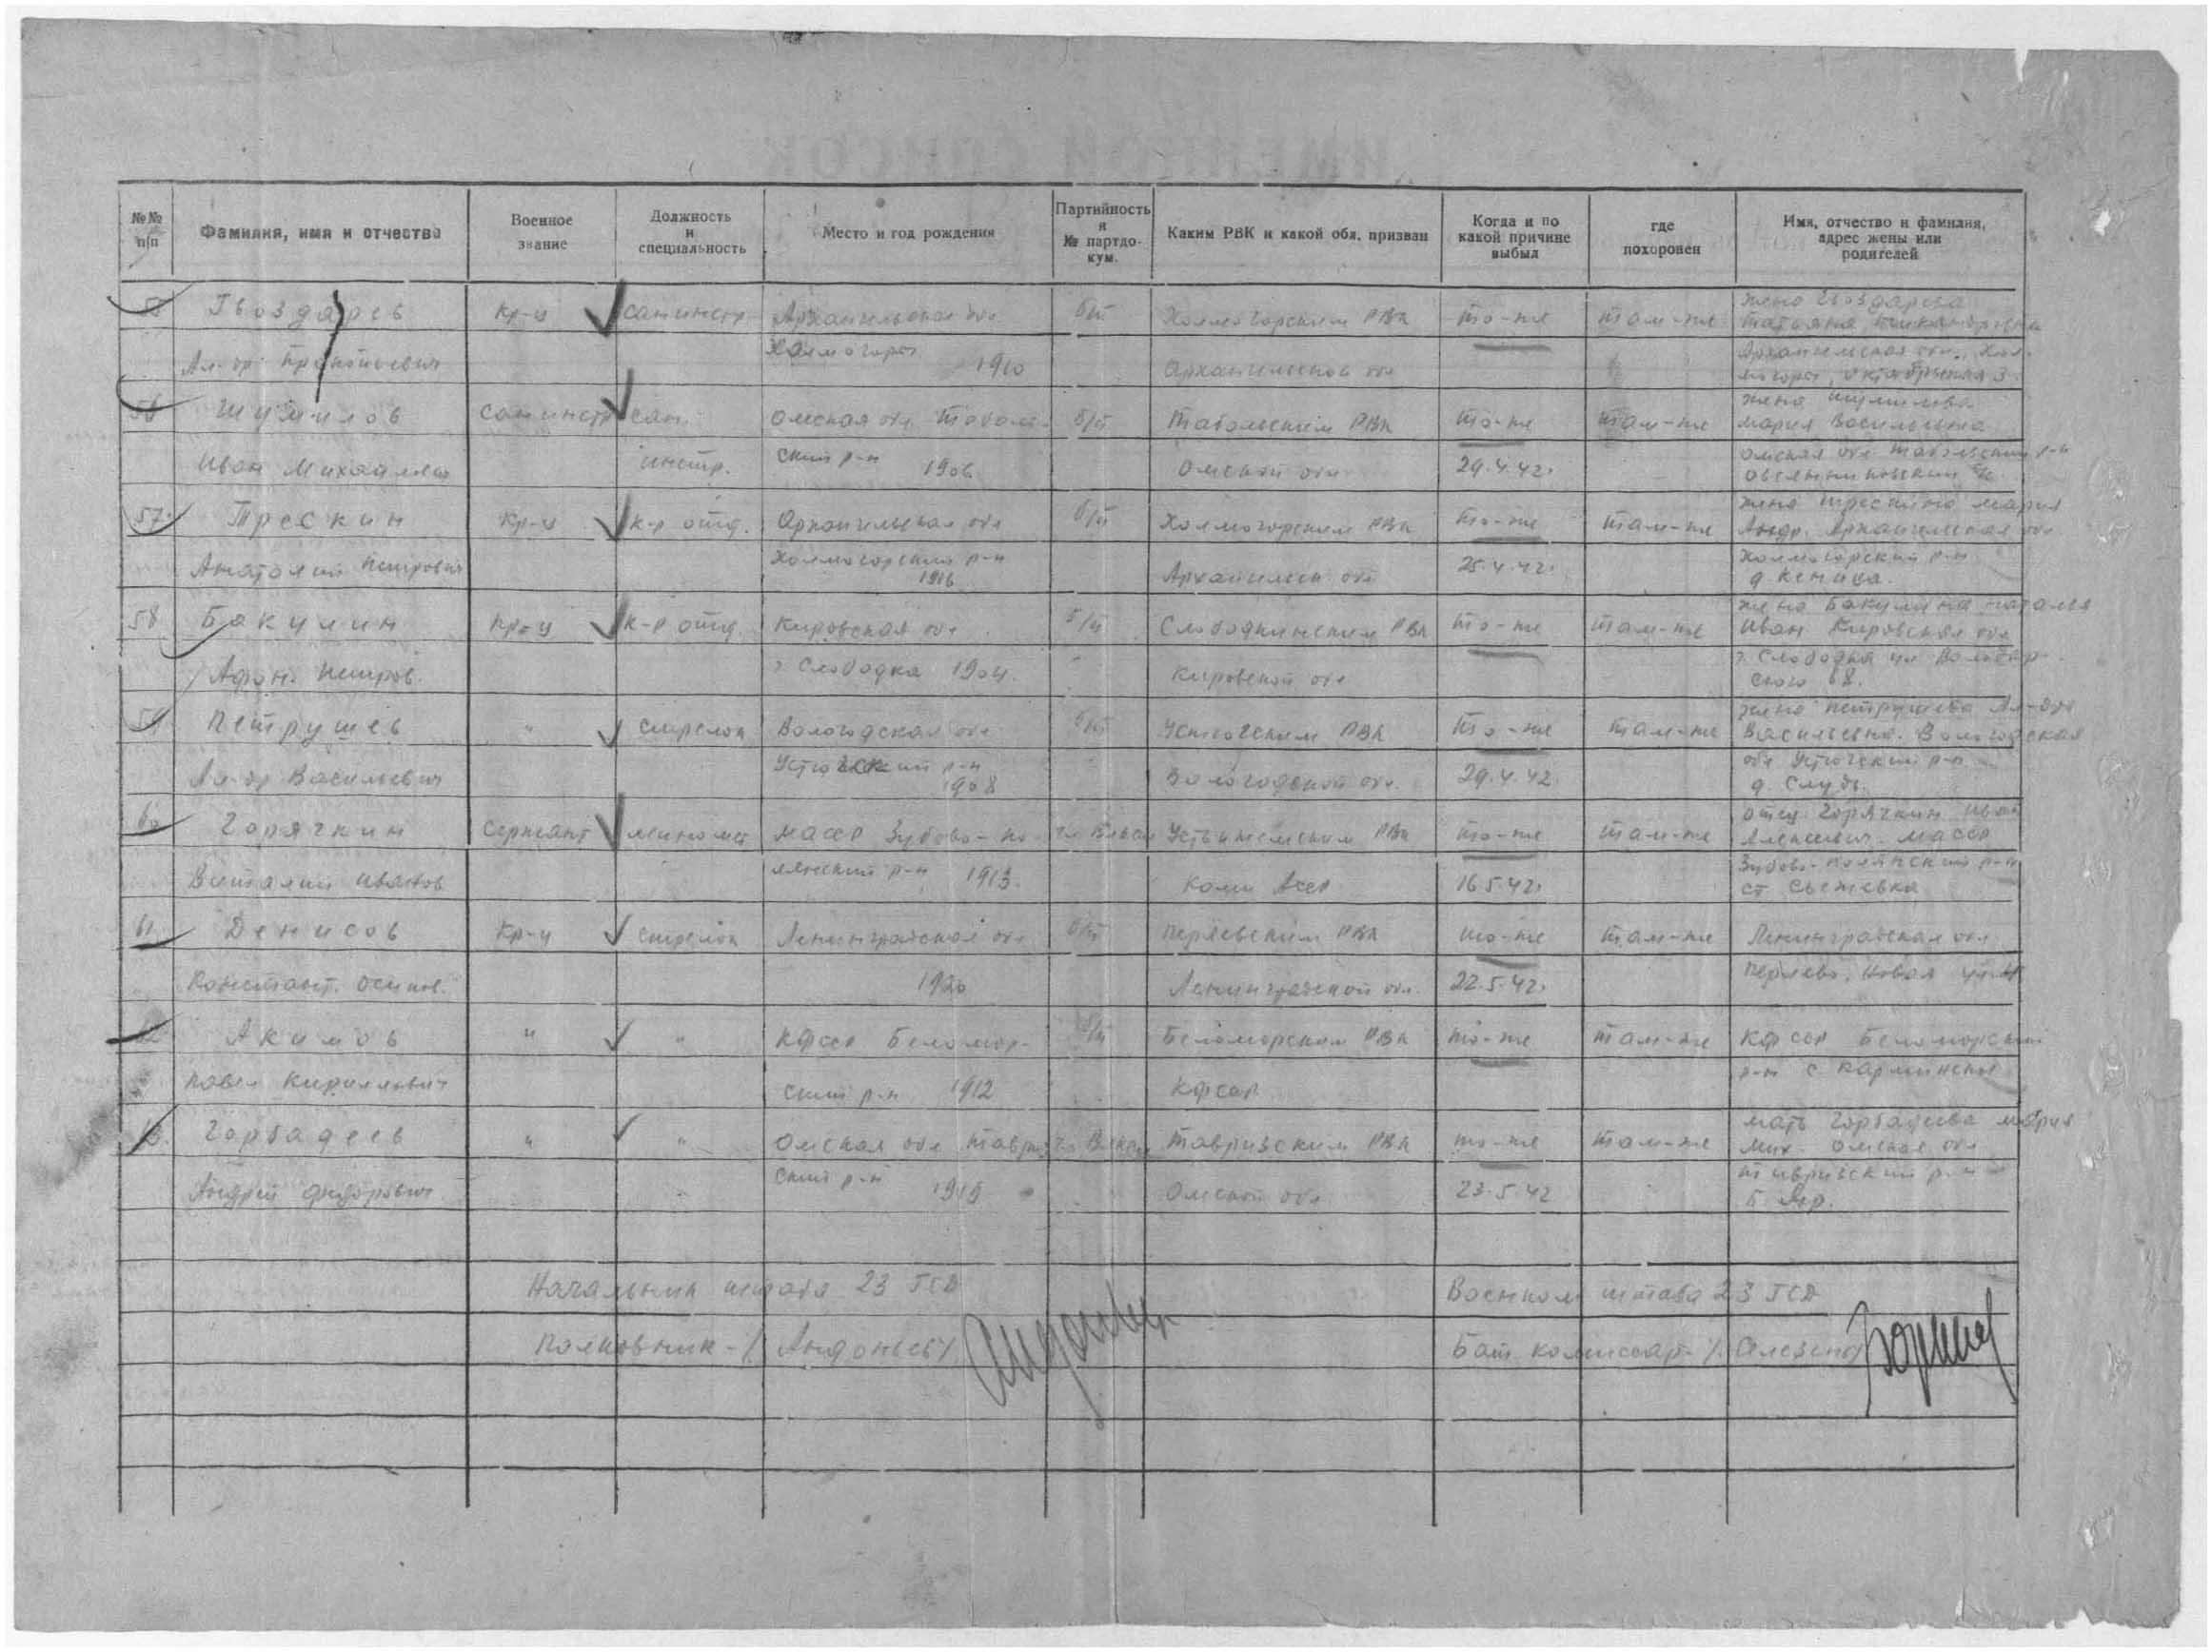 №№ п/п
Фамилия, имя и отчество
Военное звание
Должность и специальность
Место и год рождения
Партийность и № партдокум.
Каким РВК и какой обл. призван
Когда и по какой причине выбыл
где похоронен
Имя, отчество и фамилия, адрес жены или родителей
Гвоздарев Кр-ц санинстр Архангельская обл б/п Холмогорским РВК то-же там-же жена Гвоздарева
Татьяна
Ал-др Прокопьевич Холмогоры 1910 Архангельской обл Архангельская обл., Хол-
могоры, Октябрьская 3
56 Шумилов санинстр сан. Омская обл. Тоболь- б/п Тобольским РВК то-же там-же жена Шумилова
Мария Васильевна
Иван Михайлов инстр. ский р-н 1906 Омской обл 29.4.42. Омская обл Тобольский р-н
57 Трескин Кр-ц к-р отд. Архангельская обл б/п Холмогорским РВК то-же там-же жена Трескина Мария
Андр. Архангельская обл
Анатолий Петрович Холмогорский р-н 1916 Архангельск обл 25.4.42. Холмогорский р-н
д.
58 Бакулин кр-ц к-р отд. Кировская обл б/п Слободкинским РВК то-же там-же жена Бакулина Наталья
Иван Кировская обл
Афон. Петров. г Слободка 1904. Кировской обл г. Слободка ул
59 Петрушев " стрелок Вологодская обл б/п РВК то-же там-же жена Петрушева Ал-дра
Васильевна. Вологодская
Ал-др Васильевич р-н 1908 Вологодской обл. 29.4.42. обл р-н
д. Слуда.
60 Горячкин Сержант миномет МАССР Зубово-По- Устьижемским РВК то-же там-же отец Горячкин Иван
Алексеевич. МАССР
Виталий Иванов лянский р-н 1913. Коми АССР 16.5.42. Зубово-Полянский р-н
ст
61 Денисов Кр-ц стрелок Ленинградская обл б/п РВК то-же там-же Ленинградская обл
Констант. Осипов. 1920 Ленинградской обл. 22.5.42. Новая ул
62 Акимов " " КФССР Беломор- б/п Беломорским РВК то-же там-же КФССР Беломорский
Павел Кириллович ский р-н 1912 КФССР р-н с
63. Горбадеев " " Омская обл Таври- Тавризским РВК то-же там-же мать Горбадеева Мария
Мих. Омская обл
Андрей Фёдорович ский р-н 1915 Омской обл 23.5.42 Тавризский р-н
Начальник штаба 23 ГСД Военком штаба 23 ГСД
Полковник - / Андоньев / Бат. комиссар /